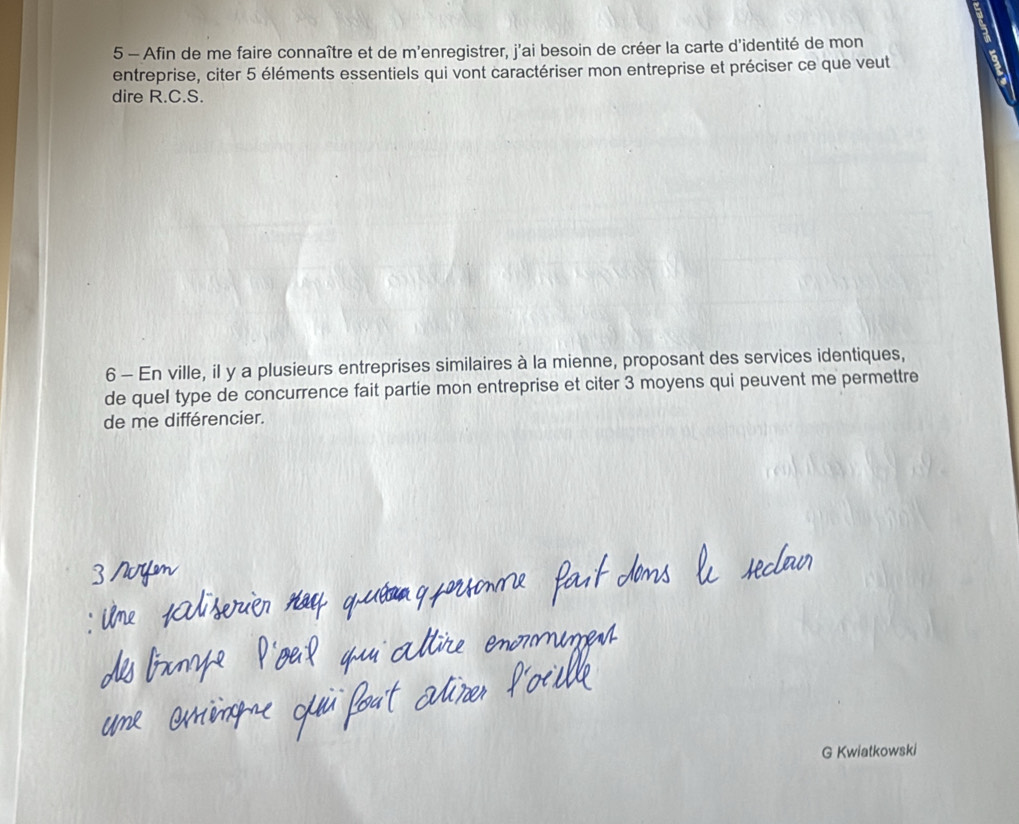 5 – Afin de me faire connaître et de m'enregistrer, j'ai besoin de créer la carte d'identité de mon
entreprise, citer 5 éléments essentiels qui vont caractériser mon entreprise et préciser ce que veut
dire R.C.S.
6 – En ville, il y a plusieurs entreprises similaires à la mienne, proposant des services identiques,
de quel type de concurrence fait partie mon entreprise et citer 3 moyens qui peuvent me permettre
de me différencier.
3
: une personne fait dans le
des l'oeil qui attire
une qui fait
G Kwiatkowski
PILOT SUPER